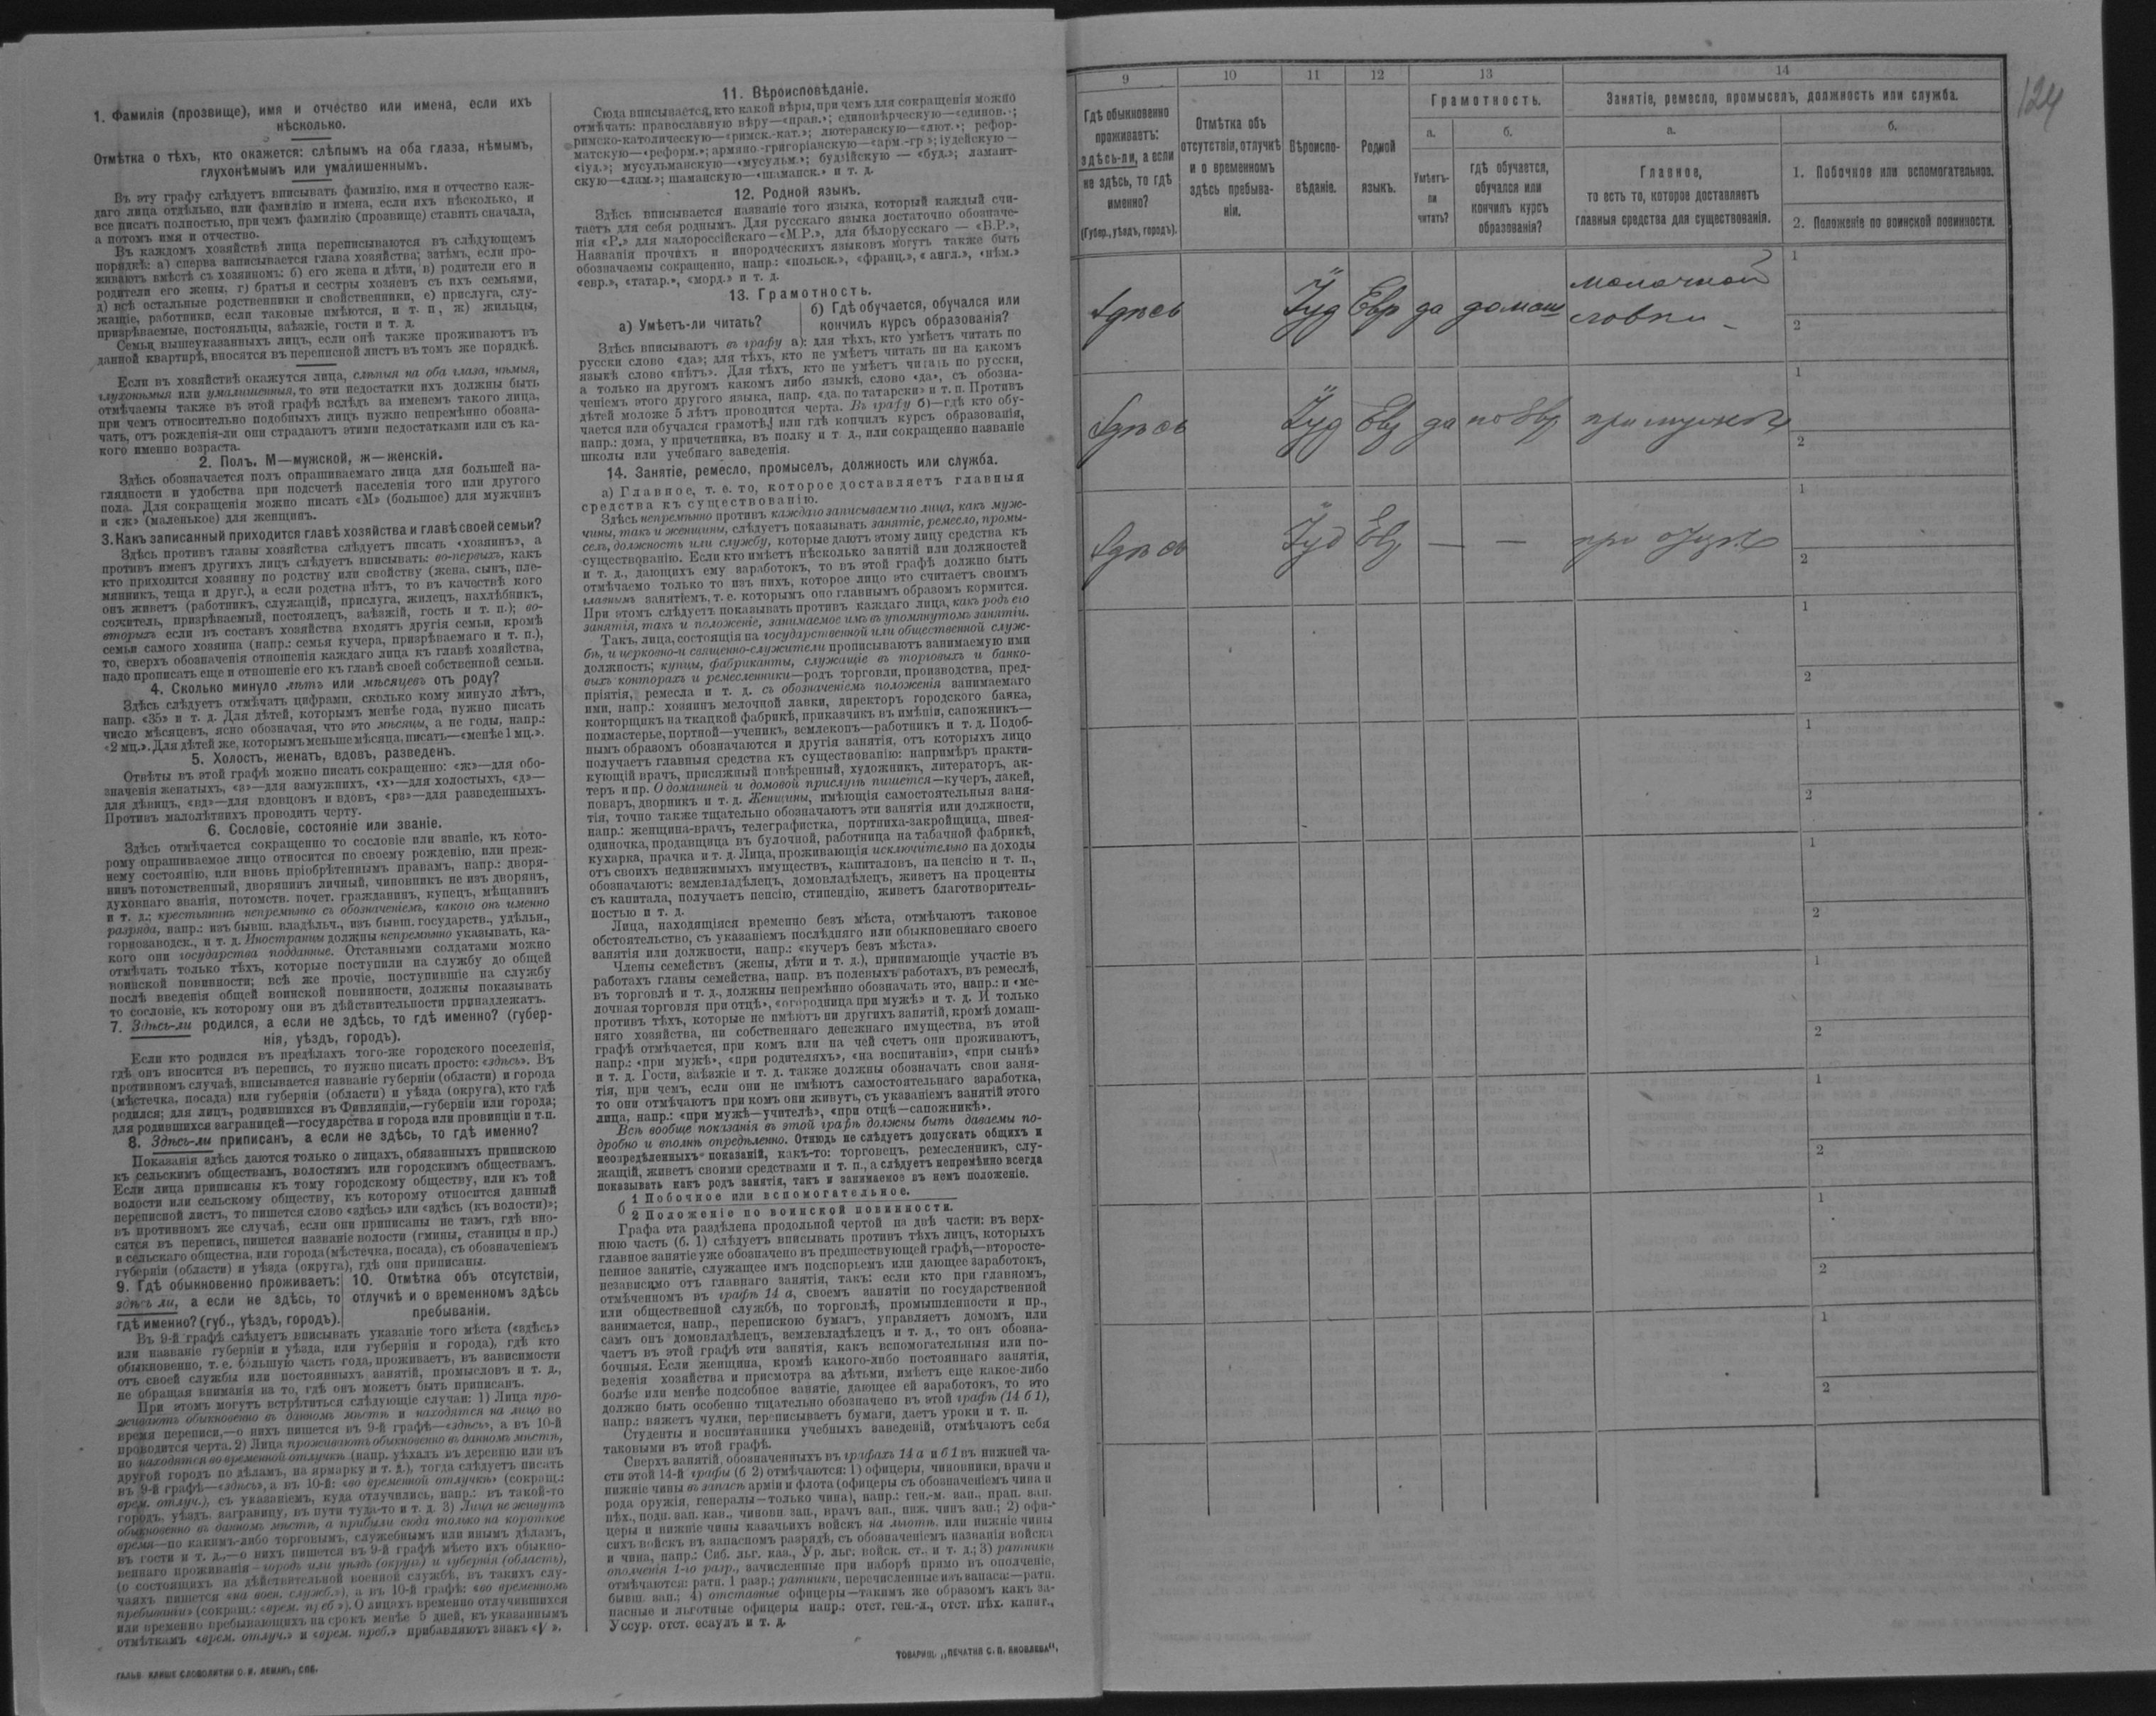 1. Фамилія (прозвище), имя и отчество или имена, если ихъ
нѣсколько.
Отмѣтка о тѣхъ, кто окажется: слѣпымъ на оба глаза, нѣмымъ,
глухонѣмымъ или умалишеннымъ.
Въ эту графу слѣдуетъ вписывать фамилію, имя и отчество каж-
даго лица отдѣльно, или фамилію и имена, если ихъ нѣсколько, и
все писать полностью, причемъ фамилію (прозвище) ставить сначала,
а потомъ имя и отчество.
Въ каждомъ хозяйствѣ лица переписываются въ слѣдующемъ
порядкѣ: а) сперва записывается глава хозяйства; затѣмъ, если про-
живаютъ вмѣстѣ съ хозяиномъ: б) его жена и дѣти, в) родители его и
родители его жены, г) братья и сестры хозяевъ съ ихъ семьями,
д) всѣ остальные родственники и свойственники, е) прислуга, слу-
жащіе, работники, если таковые имѣются, и т. п, ж) жильцы,
призрѣваемые, постояльцы, заѣзжіе, гости и т. д.
Семьи вышеуказанныхъ лицъ, если онѣ также проживаютъ въ
данной квартирѣ, вносятся въ переписной листъ въ томъ же порядкѣ.
Если въ хозяйствѣ окажутся лица, слѣпыя на оба глаза, нѣмыя,
глухонѣмыя или умалишенныя, то эти недостатки ихъ должны быть
отмѣчаемы также въ этой графѣ вслѣдъ за именемъ такого лица,
при чемъ относительно подобныхъ лицъ нужно непремѣнно обозна-
чать, отъ рожденія-ли они страдаютъ этими недостатками или съ ка-
кого именно возраста.
2. Полъ. М—мужской, ж—женскій.
Здѣсь обозначается полъ опрашиваемаго лица для большей на-
глядности и удобства при подсчетѣ населенія того или другого
пола. Для сокращенія можно писать «М» (большое) для мужчинъ
и «ж» (маленькое) для женщинъ.
3. Какъ записанный приходится главѣ хозяйства и главѣ своей семьи?
Здѣсь противъ главы хозяйства слѣдуетъ писать «хозяинъ», а
противъ именъ другихъ лицъ слѣдуетъ вписывать: во-первыхъ, какъ
кто приходится хозяину по родству или свойству (жена, сынъ, пле-
мянникъ, теща и друг.), а если родства нѣтъ, то въ качествѣ кого
онъ живетъ (работникъ, служащій, прислуга, жилецъ, нахлѣбникъ,
сожитель, призрѣваемый, постоялецъ, заѣзжій, гость и т. п.); во-
вторыхъ если въ составъ хозяйства входятъ другія семьи, кромѣ
семьи самого хозяина (напр.: семья кучера, призрѣваемаго и т. п.),
то, сверхъ обозначенія отношенія каждаго лица къ главѣ хозяйства,
надо прописать еще и отношеніе его къ главѣ своей собственной семьи.
4. Сколько минуло лѣтъ или мѣсяцевъ отъ роду?
Здѣсь слѣдуетъ отмѣчать цифрами, сколько кому минуло лѣтъ,
напр. «35» и т. д. Для дѣтей, которымъ менѣе года, нужно писать
число мѣсяцевъ, ясно обозначая, что это мѣсяцы, а не годы, напр.:
«2 мц.». Для дѣтей же, которымъ меньше мѣсяца, писать—«менѣе 1 мц.».
5. Холостъ, женатъ, вдовъ, разведенъ.
Отвѣты въ этой графѣ можно писать сокращенно: «ж»—для обо-
значенія женатыхъ, «з»—для замужнихъ, «х»—для холостыхъ, «д»—
для дѣвицъ, «вд»—для вдовцовъ и вдовъ, «рз»—для разведенныхъ.
Противъ малолѣтнихъ проводить черту.
6. Сословіе, состояніе или званіе.
Здѣсь отмѣчается сокращенно то сословіе или званіе, къ кото-
рому опрашиваемое лицо относится по своему рожденію, или преж-
нему состоянію, или вновь пріобрѣтеннымъ правамъ, напр.: дворя-
нинъ потомственный, дворянинъ личный, чиновникъ не изъ дворянъ,
духовнаго званія, потомств. почет. гражданинъ, купецъ, мѣщанинъ
и т. д.; крестьянинъ непремѣнно съ обозначеніемъ, какого онъ именно
разряда, напр.: изъ бывш. владѣльч., изъ бывш. государств., удѣльн.,
горнозаводск., и т. д. Иностранцы должны непремѣнно указывать, ка-
кого они государства подданные. Отставными солдатами можно
отмѣчать только тѣхъ, которые поступили на службу до общей
воинской повинности; всѣ же прочіе, поступившіе на службу
послѣ введенія общей воинской повинности, должны показывать
то сословіе, къ которому они въ дѣйствительности принадлежатъ.
7. Здѣсь-ли родился, а если не здѣсь, то гдѣ именно? (губер-
нія, уѣздъ, городъ).
Если кто родился въ предѣлахъ того-же городского поселенія,
гдѣ онъ вносится въ перепись, то нужно писать просто: «здѣсь». Въ
противномъ случаѣ, вписывается названіе губерніи (области) и города
(мѣстечка, посада) или губерніи (области) и уѣзда (округа), кто гдѣ
родился; для лицъ, родившихся въ Финляндіи,—губерніи или города;
для родившихся заграницей—государства и города или провинціи и т.п.
8. Здѣсь-ли приписанъ, а если не здѣсь, то гдѣ именно?
Показанія здѣсь даются только о лицахъ, обязанныхъ припискою
къ сельскимъ обществамъ, волостямъ или городскимъ обществамъ.
Если лица приписаны къ тому городскому обществу, или къ той
волости или сельскому обществу, къ которому относится данный
переписной листъ, то пишется слово «здѣсь» или «здѣсь (къ волости)»;
въ противномъ же случаѣ, если они приписаны не тамъ, гдѣ вно-
сятся въ перепись, пишется названіе волости (гмины, станицы и пр.)
и сельскаго общества, или города (мѣстечка, посада), съ обозначеніемъ
губерніи (области) и уѣзда (округа), гдѣ они приписаны.
9. Гдѣ обыкновенно проживаетъ:
здѣсь ли, а если не здѣсь, то
гдѣ именно? (губ., уѣздъ, городъ).
10. Отмѣтка объ отсутствіи,
отлучкѣ и о временномъ здѣсь
пребываніи.
Въ 9-й графѣ слѣдуетъ вписывать указаніе того мѣста («здѣсь»
или названіе губерніи и уѣзда, или губерніи и города), гдѣ кто
обыкновенно, т. е. большую часть года, проживаетъ, въ зависимости
отъ своей службы или постоянныхъ занятій, промысловъ и т. д.,
не обращая вниманія на то, гдѣ онъ можетъ быть приписанъ.
При этомъ могутъ встрѣтиться слѣдующіе случаи: 1) Лица про-
живаютъ обыкновенно въ данномъ мѣстѣ и находятся на лицо во
время переписи,—о нихъ пишется въ 9-й графѣ—«здѣсь», а въ 10-й
проводится черта. 2) Лица проживаютъ обыкновенно въ данномъ мѣстѣ,
но находятся во временной отлучкѣ (напр. уѣхалъ въ деревню или въ
другой городъ по дѣламъ, на ярмарку и т. д.), тогда слѣдуетъ писать
въ 9-й графѣ—«здѣсь», а въ 10-й: «во временной отлучкѣ» (сокращ.:
врем. отлуч.), съ указаніемъ, куда отлучились, напр.: въ такой-то
городъ, уѣздъ, заграницу, въ пути туда-то и т. д. 3) Лица не живутъ
обыкновенно въ данномъ мѣстѣ, а прибыли сюда только на короткое
время—по какимъ-либо торговымъ, служебнымъ или инымъ дѣламъ,
въ гости и т. д.,—о нихъ пишется въ 9-й графѣ мѣсто ихъ обыкно-
веннаго проживанія—городъ или уѣздъ (округъ) и губернія (область),
(о состоящихъ на дѣйствительной военной службѣ, въ такихъ слу-
чаяхъ пишется «на воен. служб.»), а въ 10-й графѣ: «во временномъ
пребываніи» (сокращ.: «врем. преб»). О лицахъ временно отлучившихся
или временно пребывающихъ на срокъ менѣе 5 дней, къ указаннымъ
отмѣткамъ «врем. отлуч.» и «врем. преб.» прибавляютъ знакъ «V».
ГАЛЬВ. КЛИШЕ СЛОВОЛИТНИ О. И. ЛЕМАНЪ, СПБ.
11. Вѣроисповѣданіе.
Сюда вписывается, кто какой вѣры, при чемъ для сокращенія можно
отмѣчать: православную вѣру—«прав.»; единовѣрческую—«единов.»;
римско-католическую—«римск.-кат.»; лютеранскую—«лют.»; рефор-
матскую—«реформ.»; армяно-григоріанскую—«арм.-гр»; іудейскую—
«іуд.»; мусульманскую—«мусульм.»; буддійскую — «буд.»; ламаит-
скую—«лам.»; шаманскую—«шаманск.» и т. д.
12. Родной языкъ.
Здѣсь вписывается названіе того языка, который каждый счи-
таетъ для себя роднымъ. Для русскаго языка достаточно обозначе-
нія «Р.» для малороссійскаго—«М.Р.», для бѣлорусскаго — «Б.Р.»,
Названія прочихъ и инородческихъ языковъ могутъ также быть
обозначаемы сокращенно, напр.: «польск.», «франц.», «англ.», «нѣм.»
«евр.», «татар.», «морд.» и т. д.
13. Грамотность.
а) Умѣетъ-ли читать?
б) Гдѣ обучается, обучался или
кончилъ курсъ образованія?
Здѣсь вписываютъ въ графу а): для тѣхъ, кто умѣетъ читать по
русски слово «да»; для тѣхъ, кто не умѣетъ читать ни на какомъ
языкѣ слово «нѣтъ». Для тѣхъ, кто не умѣетъ читать по русски,
а только на другомъ какомъ либо языкѣ, слово «да», съ обозна-
ченіемъ этого другого языка, напр. «да. по татарски» и т. п. Противъ
дѣтей моложе 5 лѣтъ проводится черта. Въ графу б)—гдѣ кто обу-
чается или обучался грамотѣ, или гдѣ кончилъ курсъ образованія,
напр.: дома, у причетника, въ полку и т д., или сокращенно названіе
школы или учебнаго заведенія.
14. Занятіе, ремесло, промыселъ, должность или служба.
а) Главное, т. е. то, которое доставляетъ главныя
средства къ существованію.
Здѣсь непремѣнно противъ каждаго записываемаго лица, какъ муж-
чины, такъ и женщины, слѣдуетъ показывать занятіе, ремесло, промы-
селъ, должность или службу, которые даютъ этому лицу средства къ
существованію. Если кто имѣетъ нѣсколько занятій или должностей
и т. д., дающихъ ему заработокъ, то въ этой графѣ должно быть
отмѣчаемо только то изъ нихъ, которое лицо это считаетъ своимъ
главнымъ занятіемъ, т. е. которымъ оно главнымъ образомъ кормится.
При этомъ слѣдуетъ показывать противъ каждаго лица, какъ родъ его
занятія, такъ и положеніе, занимаемое имъ въ упомянутомъ занятіи.
Такъ, лица, состоящія на государственной или общественной служ-
бѣ, и церковно-и священно-служители прописываютъ занимаемую ими
должность; купцы, фабриканты, служащіе въ торговыхъ и банко-
выхъ конторахъ и ремесленники—родъ торговли, производства, пред-
пріятія, ремесла и т. д. съ обозначеніемъ положенія занимаемаго
ими, напр.: хозяинъ мелочной лавки, директоръ городского банка,
конторщикъ на ткацкой фабрикѣ, приказчикъ въ имѣніи, сапожникъ—
подмастерье, портной—ученикъ, землекопъ—работникъ и т. д. Подоб-
нымъ образомъ обозначаются и другія занятія, отъ которыхъ лицо
получаетъ главныя средства къ существованію: напримѣръ практи-
кующій врачъ, присяжный повѣренный, художникъ, литераторъ, ак-
теръ и пр. О домашней и домовой прислугѣ пишется—кучеръ, лакей,
поваръ, дворникъ и т. д. Женщины, имѣющія самостоятельныя заня-
тія, точно также тщательно обозначаютъ эти занятія или должности,
напр.: женщина-врачъ, телеграфистка, портниха-закройщица, швея-
одиночка, продавщица въ булочной, работница на табачной фабрикѣ,
кухарка, прачка и т. д. Лица, проживающія исключительно на доходы
отъ своихъ недвижимыхъ имуществъ, капиталовъ, на пенсію и т. п.,
обозначаютъ: землевладѣлецъ, домовладѣлецъ, живетъ на проценты
съ капитала, получаетъ пенсію, стипендію, живетъ благотворитель-
ностью и т. д.
Лица, находящіяся временно безъ мѣста, отмѣчаютъ таковое
обстоятельство, съ указаніемъ послѣдняго или обыкновеннаго своего
занятія или должности, напр.: «кучеръ безъ мѣста».
Члены семействъ (жены, дѣти и т. д.), принимающіе участіе въ
работахъ главы семейства, напр. въ полевыхъ работахъ, въ ремеслѣ,
въ торговлѣ и т. д., должны непремѣнно обозначать это, напр.: и «ме-
лочная торговля при отцѣ», «огородница при мужѣ» и т. д. И только
противъ тѣхъ, которые не имѣютъ ни другихъ занятій, кромѣ домаш-
няго хозяйства, ни собственнаго денежнаго имущества, въ этой
графѣ отмѣчается, при комъ или на чей счетъ они проживаютъ,
напр.: «при мужѣ», «при родителяхъ», «на воспитаніи», «при сынѣ»
и т. д. Гости, заѣзжіе и т. д. также должны обозначать свои заня-
тія, при чемъ, если они не имѣютъ самостоятельнаго заработка,
то они отмѣчаютъ при комъ они живутъ, съ указаніемъ занятій этого
лица, напр.: «при мужѣ—учителѣ», «при отцѣ—сапожникѣ».
Всѣ вообще показанія въ этой графѣ должны быть даваемы по-
дробно и вполнѣ опредѣленно. Отнюдь не слѣдуетъ допускать общихъ и
неопредѣленныхъ показаній, какъ-то: торговецъ, ремесленникъ, слу-
жащій, живетъ своими средствами и т. п., а слѣдуетъ непремѣнно всегда
показывать какъ родъ занятія, такъ и занимаемое въ немъ положеніе.
б 1 Побочное или вспомогательное.
2 Положеніе по воинской повинности.
Графа эта раздѣлена продольной чертой на двѣ части: въ верх-
нюю часть (б. 1) слѣдуетъ вписывать противъ тѣхъ лицъ, которыхъ
главное занятіе уже обозначено въ предшествующей графѣ,—второсте-
пенное занятіе, служащее имъ подспорьемъ или дающее заработокъ,
независимо отъ главнаго занятія, такъ: если кто при главномъ,
отмѣченномъ въ графѣ 14 а, своемъ занятіи по государственной
или общественной службѣ, по торговлѣ, промышленности и пр.,
занимается, напр., перепискою бумагъ, управляетъ домомъ, или
самъ онъ домовладѣлецъ, землевладѣлецъ и т. д., то онъ обозна-
чаетъ въ этой графѣ эти занятія, какъ вспомогательныя или по-
бочныя. Если женщина, кромѣ какого-либо постояннаго занятія,
веденія хозяйства и присмотра за дѣтьми, имѣетъ еще какое-либо
болѣе или менѣе подсобное занятіе, дающее ей заработокъ, то это
должно быть особенно тщательно обозначено въ этой графѣ (14 б 1),
напр.: вяжетъ чулки, переписываетъ бумаги, даетъ уроки и т. п.
Студенты и воспитанники учебныхъ заведеній, отмѣчаютъ себя
таковыми въ этой графѣ.
Сверхъ занятій, обозначенныхъ въ графахъ 14 а и б 1 въ нижней ча-
сти этой 14-й графы (б 2) отмѣчаются: 1) офицеры, чиновники, врачи и
нижніе чины въ запасѣ арміи и флота (офицеры съ обозначеніемъ чина и
рода оружія, генералы—только чина), напр.: ген.-м. зап., прап. зап.
пѣх., подп. зап. кав., чиновн. зап., врачъ зап., ниж. чинъ зап.; 2) офи-
церы и нижніе чины казачьихъ войскъ на льготѣ. или нижніе чины
сихъ войскъ въ запасномъ разрядѣ, съ обозначеніемъ названія войска
и чина, напр.: Сиб. льг. каз., Ур. льг. войск. ст., и т. д.; 3) ратники
ополченія 1-го разр., зачисленные при наборѣ прямо въ ополченіе,
отмѣчаются: ратн. 1 разр.; ратники, перечисленные изъ запаса:—ратн.
бывш. зап.; 4) отставные офицеры—такимъ же образомъ какъ за-
пасные и льготные офицеры напр.: отст. ген.-л., отст. пѣх. капит.,
Уссур. отст. есаулъ и т. д.
ТОВАРИЩ. „ПЕЧАТНЯ С. П. ЯКОВЛЕВА".
124
9 10 11 12 13 14
Гдѣ обыкновенно
проживаетъ:
здѣсь-ли, а если
не здѣсь, то гдѣ
именно?
(Губер., уѣздъ, городъ).
Отмѣтка объ
отсутствіи, отлучкѣ
и о временномъ
здѣсь пребыва-
ніи.
Вѣроиспо-
вѣданіе.
Родной
языкъ.
Грамотность.
а.
Умѣетъ-
ли
читать?
б.
гдѣ обучается,
обучался или
кончилъ курсъ
образованія?
Занятіе, ремесло, промыселъ, должность или служба.
а.
Главное,
то есть то, которое доставляетъ
главныя средства для существованія.
б.
1. Побочное или вспомогательное.
2. Положеніе по воинской повинности.
здѣсь Іуд Евр да домаш молочной 1
2
здѣсь Іуд Евр да по Евр при мужѣ 1
2
здѣсь Іуд Евр — — при отцѣ 1
2
1
2
1
2
1
2
1
2
1
2
1
2
1
2